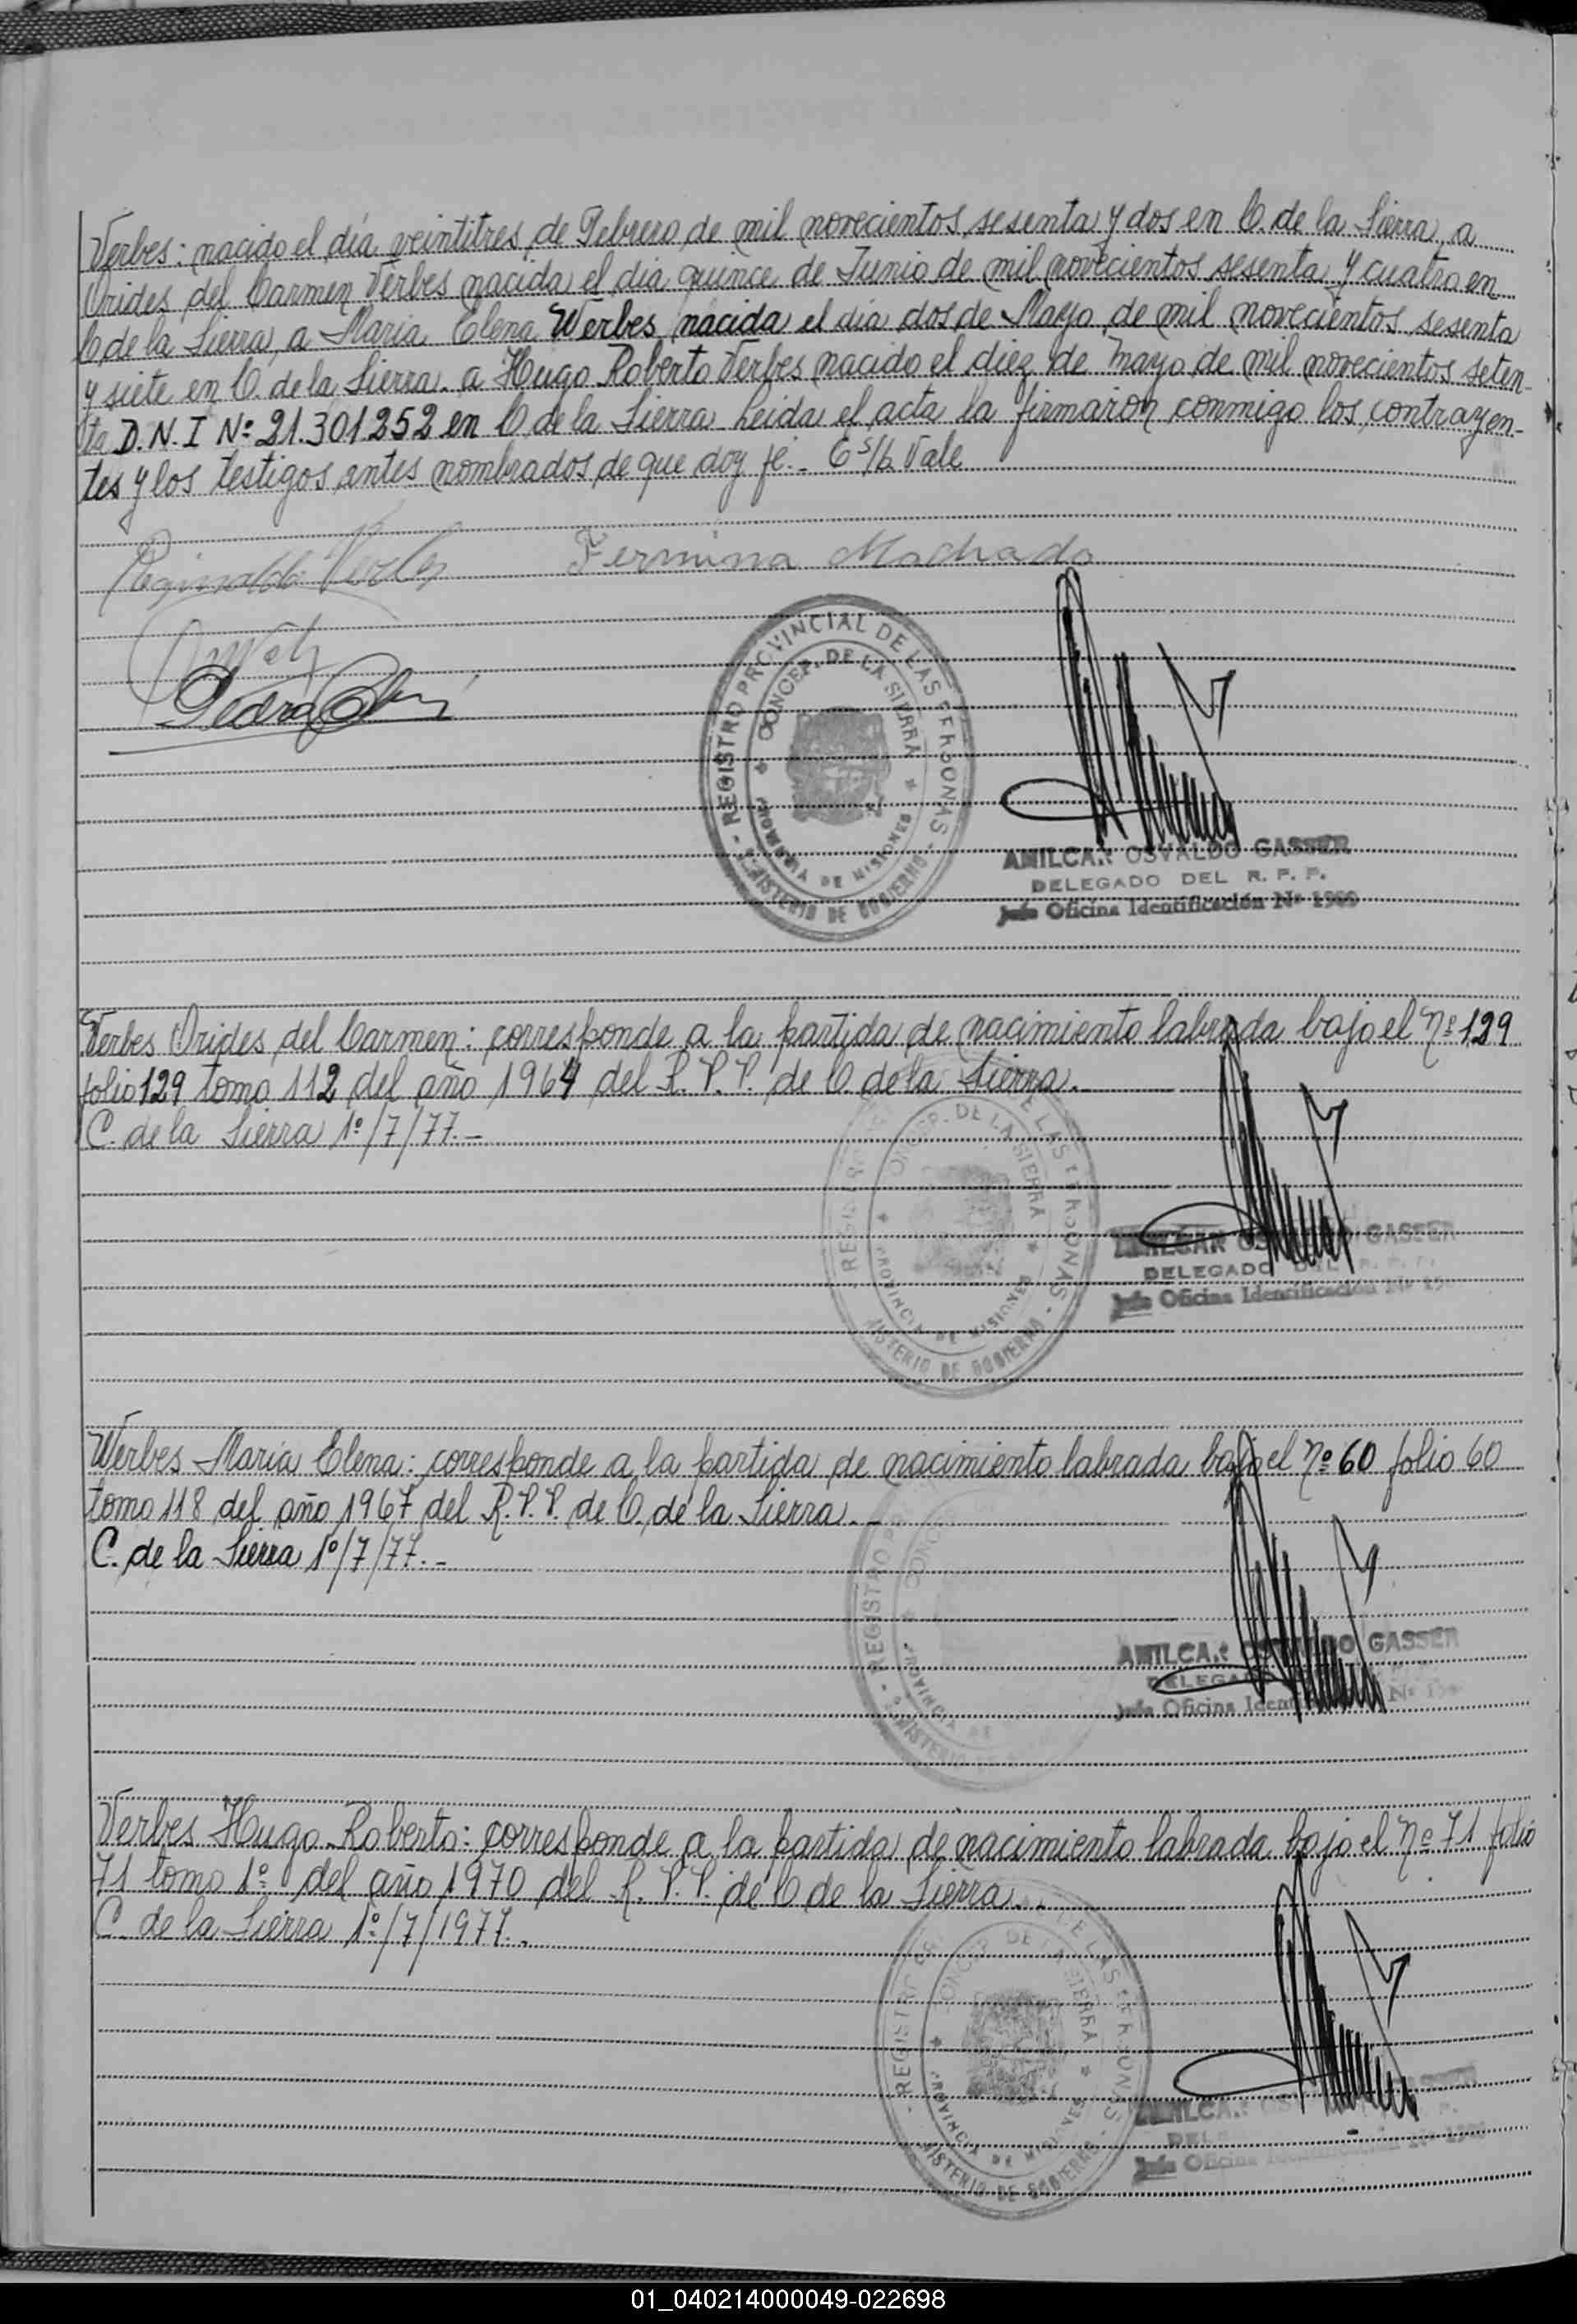 Verbes: nacido el día veintitres de Febrero de mil novecientos sesenta y dos en C. de la Sierra, a
Orides del Carmen Verbes nacida el dia quince de Junio de mil novecientos sesenta y cuatro en
C de la Sierra, a Maria Elena Werbes nacida el dia dos de Mayo de mil novecientos sesenta
y siete en C. de la Sierra. a Hugo Roberto Verbes nacido el diez de mayo de mil novecientos seten-
ta D.N.I Nº 21.301.252 en C. de la Sierra Leida el acta la firmaron conmigo los contrayen-
tes y los testigos antes nombrados de que doy fé.- E s/b Vale
Reginaldo Verbes Fermina Machado
Pedro
- REGISTRO PROVINCIAL DE LAS PERSONAS - MINISTERIO DE GOBIERNO
CONCEP. DE LA SIERRA * PROVINCIA DE MISIONES *
AMILCAR OSVALDO GASSER
DELEGADO DEL R. P. P.
Jefe Oficina Identificación Nº 1960
Verbes Orides del Carmen: corresponde a la partida de nacimiento labrada bajo el nº 129
folio 129 tomo 112 del año 1964 del R.P.P. de C. de la Sierra.
C. de la Sierra 1º/7/77.-
REGISTRO LAS PERSONAS - MINISTERIO DE GOBIERNO
CONCEP. DE LA SIERRA * PROVINCIA DE MISIONES *
AMILCAR OSVALDO GASSER
DELEGADO DEL R. P. P.
Jefe Oficina Identificación Nº
Werbes Maria Elena: corresponde a la partida de nacimiento labrada bajo el nº 60 folio 60
tomo 118 del año 1967 del R.P.P. de C. de la Sierra.-
C. de la Sierra 1º/7/77.-
- REGISTRO MINISTERIO DE
CONCEP PROVINCIA DE
AMILCAR OSVALDO GASSER
DELEGADO
Jefe Oficina Identificación Nº
Verbes Hugo Roberto: corresponde a la partida de nacimiento labrada bajo el nº 71 folio
71 tomo 1º del año 1970 del R.P.P. de C de la Sierra..
C. de la Sierra 1º/7/1977..
- REGISTRO DE LAS PERSONAS - MINISTERIO DE GOBIERNO
CONCEP DE LA SIERRA * PROVINCIA DE MISIONES *
AMILCAR OSVALDO GASSER
DELEGADO
Jefe Oficina Identificación Nº
01_040214000049-022698